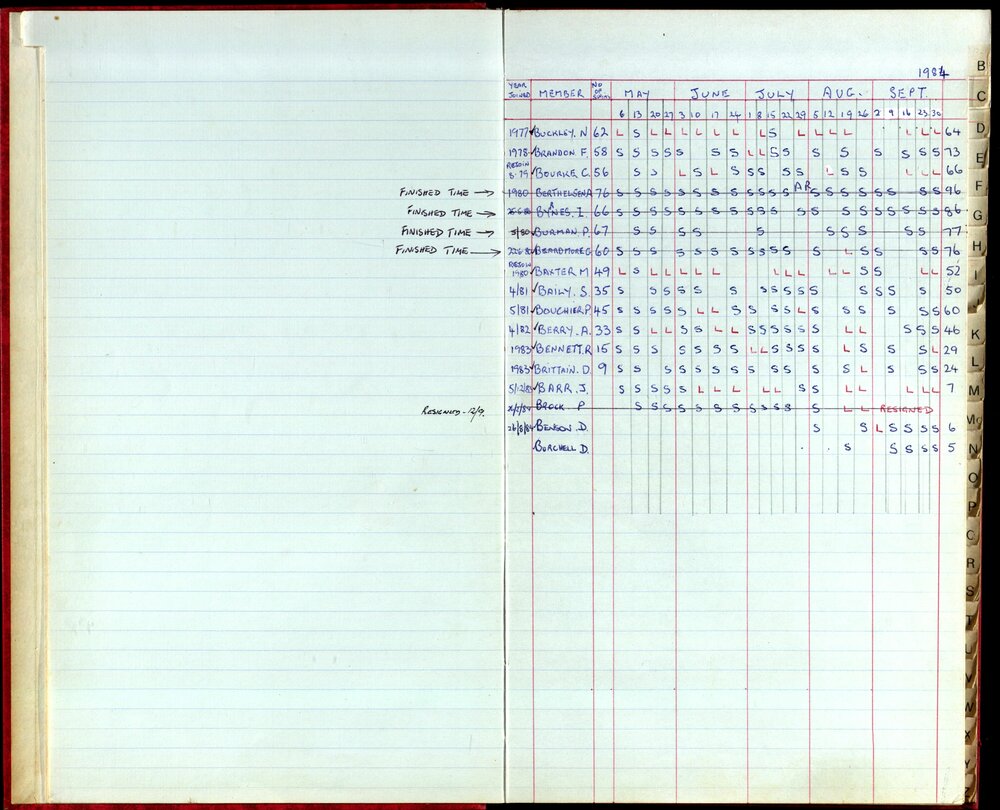 1984
YEAR JOINED MEMBER NO OF SWIMS MAY JUNE JULY AUG. SEPT.
6 13 20 27 3 10 17 24 1 8 15 22 29 5 12 19 26 2 9 16 23 30
1977 BUCKLEY. N 62 L S L L L L L L L S L L L L L L L 64
1978 BRANDON F. 58 S S S S S S S S S L L S S S S S S S S 73
REJOIN 8.79 BOURKE C. 56 S S L S L S S S S S S L S S L L L 66
FINISHED TIME → 1980 BERTHELSEN A 76 S S S S S S S S S S S S AR S S S S S S S S 96
FINISHED TIME → BYNES. I. 66 S S S S S S S S S S S S S S S S S S S S 86
FINISHED TIME → 5/80 BURMAN P. 67 S S S S S S S S S S 77
FINISHED TIME → BEARDMORE G 60 S S S S S S S S S S S S S L S S S S 76
REJOIN 1980 BAXTER M 49 L S L L L L L L L L L L S S L L 52
4/81 BAILY. S. 35 S S S S S S S S S S S S S S S 50
5/81 BOUCHIER P. 45 S S S S S L L S S S S L S S S S S S 60
4/82 BERRY. A. 33 S S L L S S L L S S S S S S L L S S S S 46
1983 BENNETT. R 15 S S S S S S S L L S S S S L S S S L 29
1983 BRITTAIN. D. 9 S S S S S S S S S S S S L S S S 24
5/12/83 BARR. J. S S S S S L L L L L S S L L L L L 7
RESIGNED - 12/9. BROCK. P S S S S S S S S S S S S L L RESIGNED
26/8/84 BENSON. D. S S L S S S S 6
BURCHELL D. S S S S S 5
B
C
D
E
F
G
H
I
J
K
L
M
Mc
N
O
P
Q
R
S
T
U
V
W
X
Y
Z